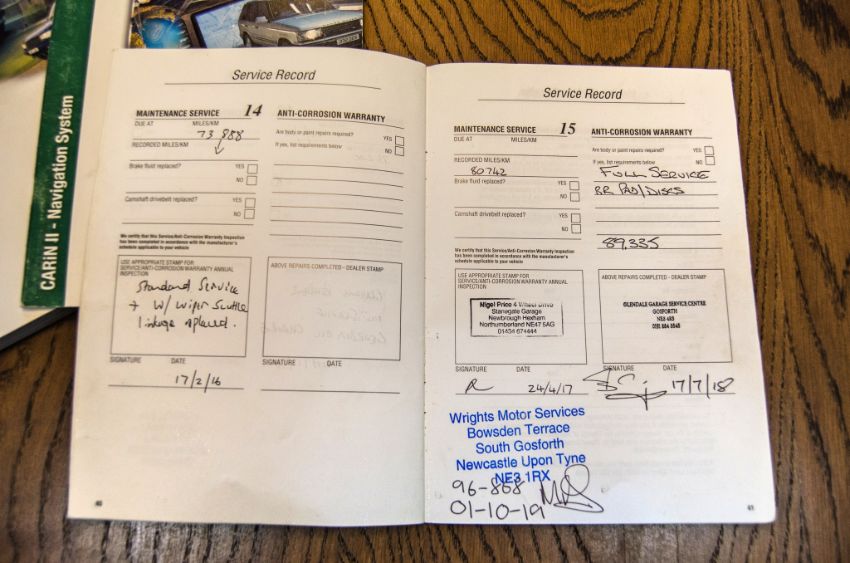 CARiN II - Navigation System
Service Record
MAINTENANCE SERVICE 14
DUE AT MILES/KM
73 888
RECORDED MILES/KM
Brake fluid replaced? YES
NO
Camshaft drivebelt replaced? YES
NO
We certify that this Service/Anti-Corrosion Warranty Inspection
has been completed in accordance with the manufacturer's
schedule applicable to your vehicle
USE APPROPRIATE STAMP FOR
SERVICE/ANTI-CORROSION WARRANTY ANNUAL
INSPECTION
Standard Service
+ W/ Wiper Scuttle
linkage replaced.
SIGNATURE DATE
17/2/16
ANTI-CORROSION WARRANTY
Are body or paint repairs required? YES
If yes, list requirements below NO
ABOVE REPAIRS COMPLETED - DEALER STAMP
SIGNATURE DATE
40
Service Record
MAINTENANCE SERVICE 15
DUE AT MILES/KM
RECORDED MILES/KM
80742
Brake fluid replaced? YES
NO
Camshaft drivebelt replaced? YES
NO
We certify that this Service/Anti-Corrosion Warranty Inspection
has been completed in accordance with the manufacturer's
schedule applicable to your vehicle
USE APPROPRIATE STAMP FOR
SERVICE/ANTI-CORROSION WARRANTY ANNUAL
INSPECTION
Nigel Price 4 Wheel Drive
Stanegate Garage
Newbrough Hexham
Northumberland NE47 5AG
01434 674444
SIGNATURE DATE
24/4/17
ANTI-CORROSION WARRANTY
Are body or paint repairs required? YES
If yes, list requirements below NO
FULL SERVICE
RR PAD/DISCS
89,335
ABOVE REPAIRS COMPLETED - DEALER STAMP
GLENDALE GARAGE SERVICE CENTRE
GOSFORTH
SIGNATURE DATE
17/7/18
Wrights Motor Services
Bowsden Terrace
South Gosforth
Newcastle Upon Tyne
NE3 1RX
96-868
01-10-19
41